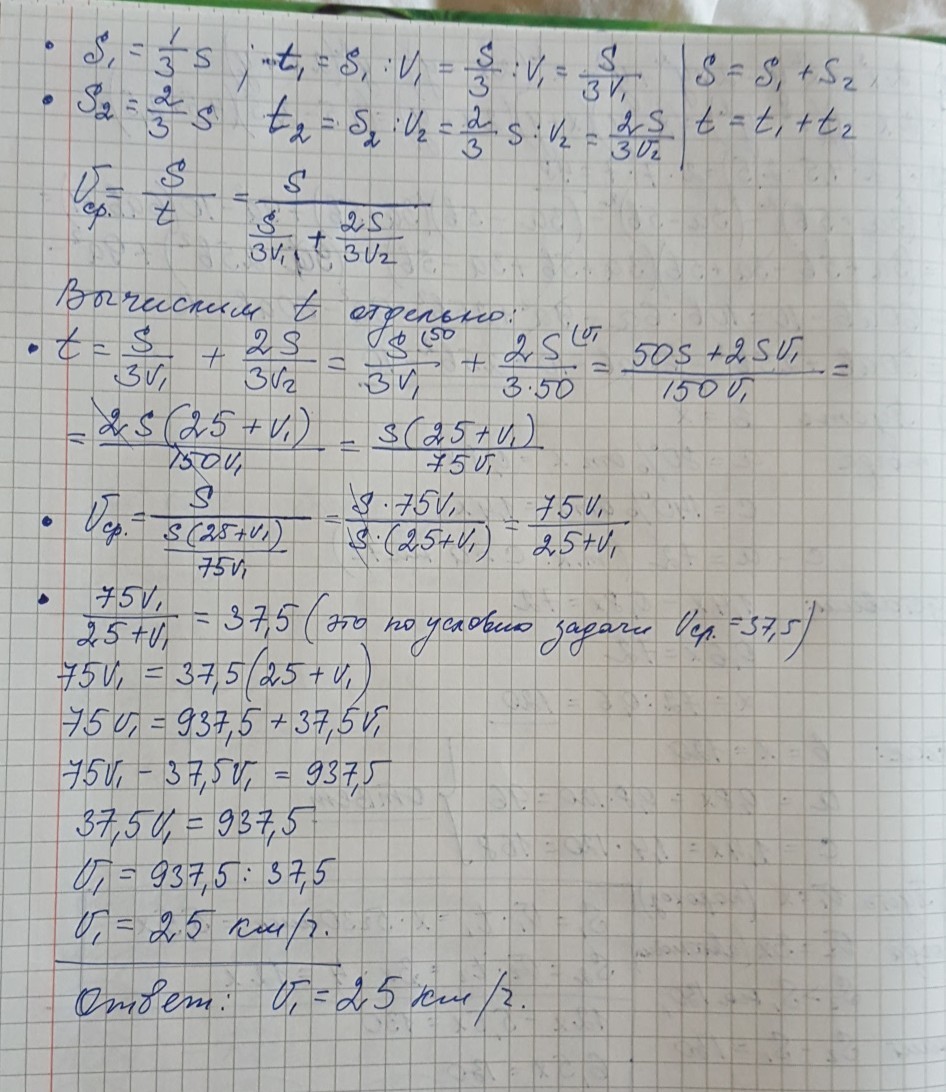 • S₁ = 1/3 S ; t₁ = S₁ : V₁ = S/3 : V₁ = S/3V₁ | S = S₁ + S₂
• S₂ = 2/3 S t₂ = S₂ : V₂ = 2/3 S : V₂ = 2S/3V₂ | t = t₁ + t₂
Vср. = S/t = S/(S/3V₁ + 2S/3V₂)
Вычислим t отдельно:
• t = S/3V₁ + 2S/3V₂ = S(50/3V₁ + 2S(V₁/3·50 = (50S + 2SV₁)/150V₁ =
= 2S(25 + V₁)/150V₁ = S(25 + V₁)/75V₁
• Vср. = S/(S(25+V₁)/75V₁) = S · 75V₁/S·(25+V₁) = 75V₁/(25+V₁)
• 75V₁/(25+V₁) = 37,5 (это по условию задачи Vср. = 37,5)
75V₁ = 37,5(25 + V₁)
75V₁ = 937,5 + 37,5V₁
75V₁ - 37,5V₁ = 937,5
37,5V₁ = 937,5
V₁ = 937,5 : 37,5
V₁ = 25 км/ч.
Ответ: V₁ = 25 км/ч.